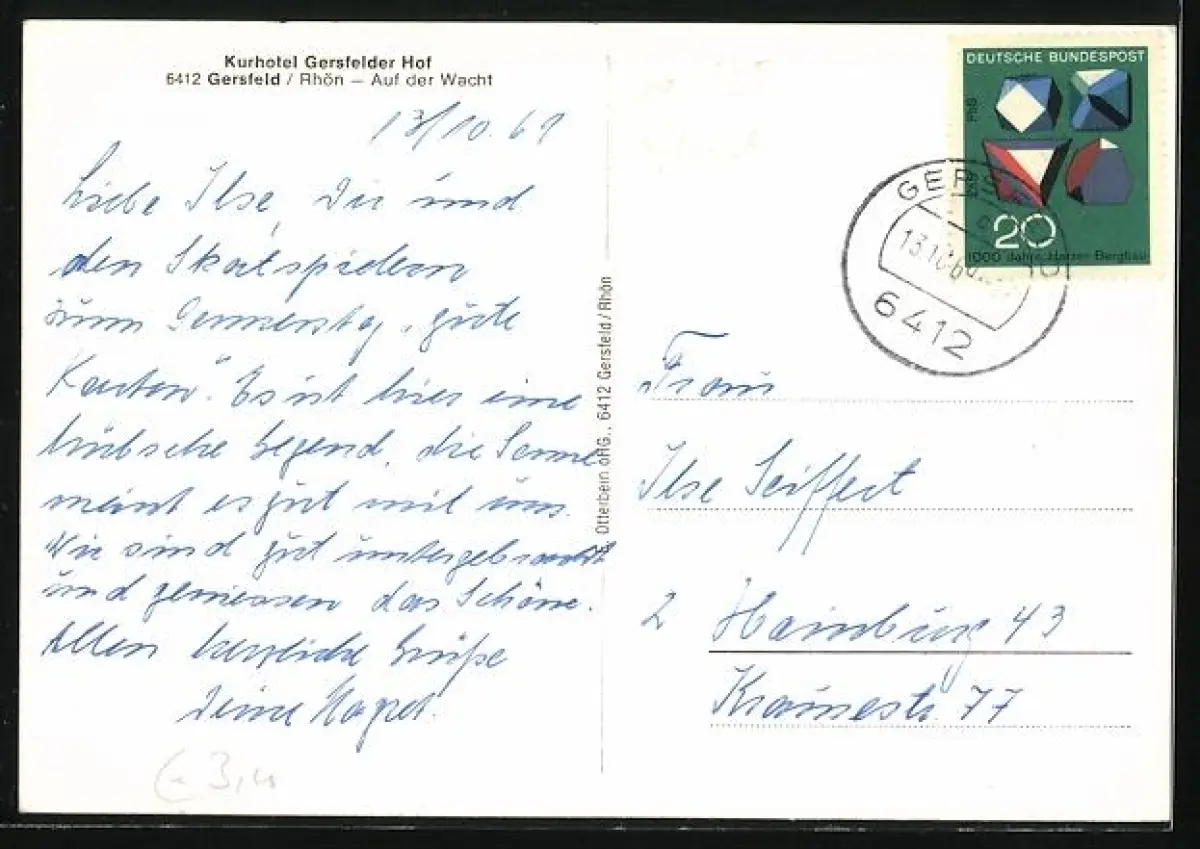 Kurhotel Gersfelder Hof
6412 Gersfeld / Rhön – Auf der Wacht
13/10.69
Liebe Ilse, Dir und
den Skatspielern
zum Donnerstag „gute
Karten". Es ist hier eine
hübsche Gegend, die Sonne
meint es gut mit uns.
Wir sind gut untergebracht
und geniessen das Schöne.
Allen herzliche Grüße
Deine
Otterbein oHG., 6412 Gersfeld/Rhön
DEUTSCHE BUNDESPOST
PbS
20
1000 Jahre Harzer Bergbau
13.10.69
6412
Frau
Ilse Seiffert
2 Hamburg 43
77